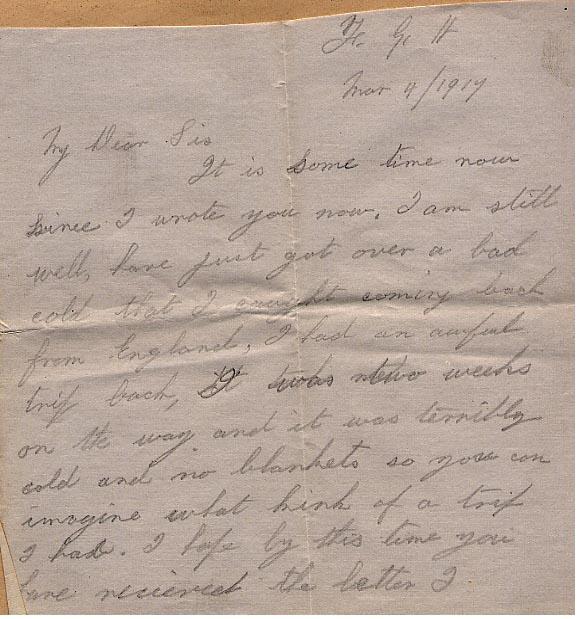 F. G. H
Mar 4/1917
My Dear Sis
It is some time now
since I wrote you now, I am still
well, have just got over a bad
cold that I caught coming back
from England, I had an awful
trip back, It was two weeks
on the way and it was terribly
cold and no blankets so you can
imagine what kink of a trip
I had. I hope by this time you
have recieved the letter I